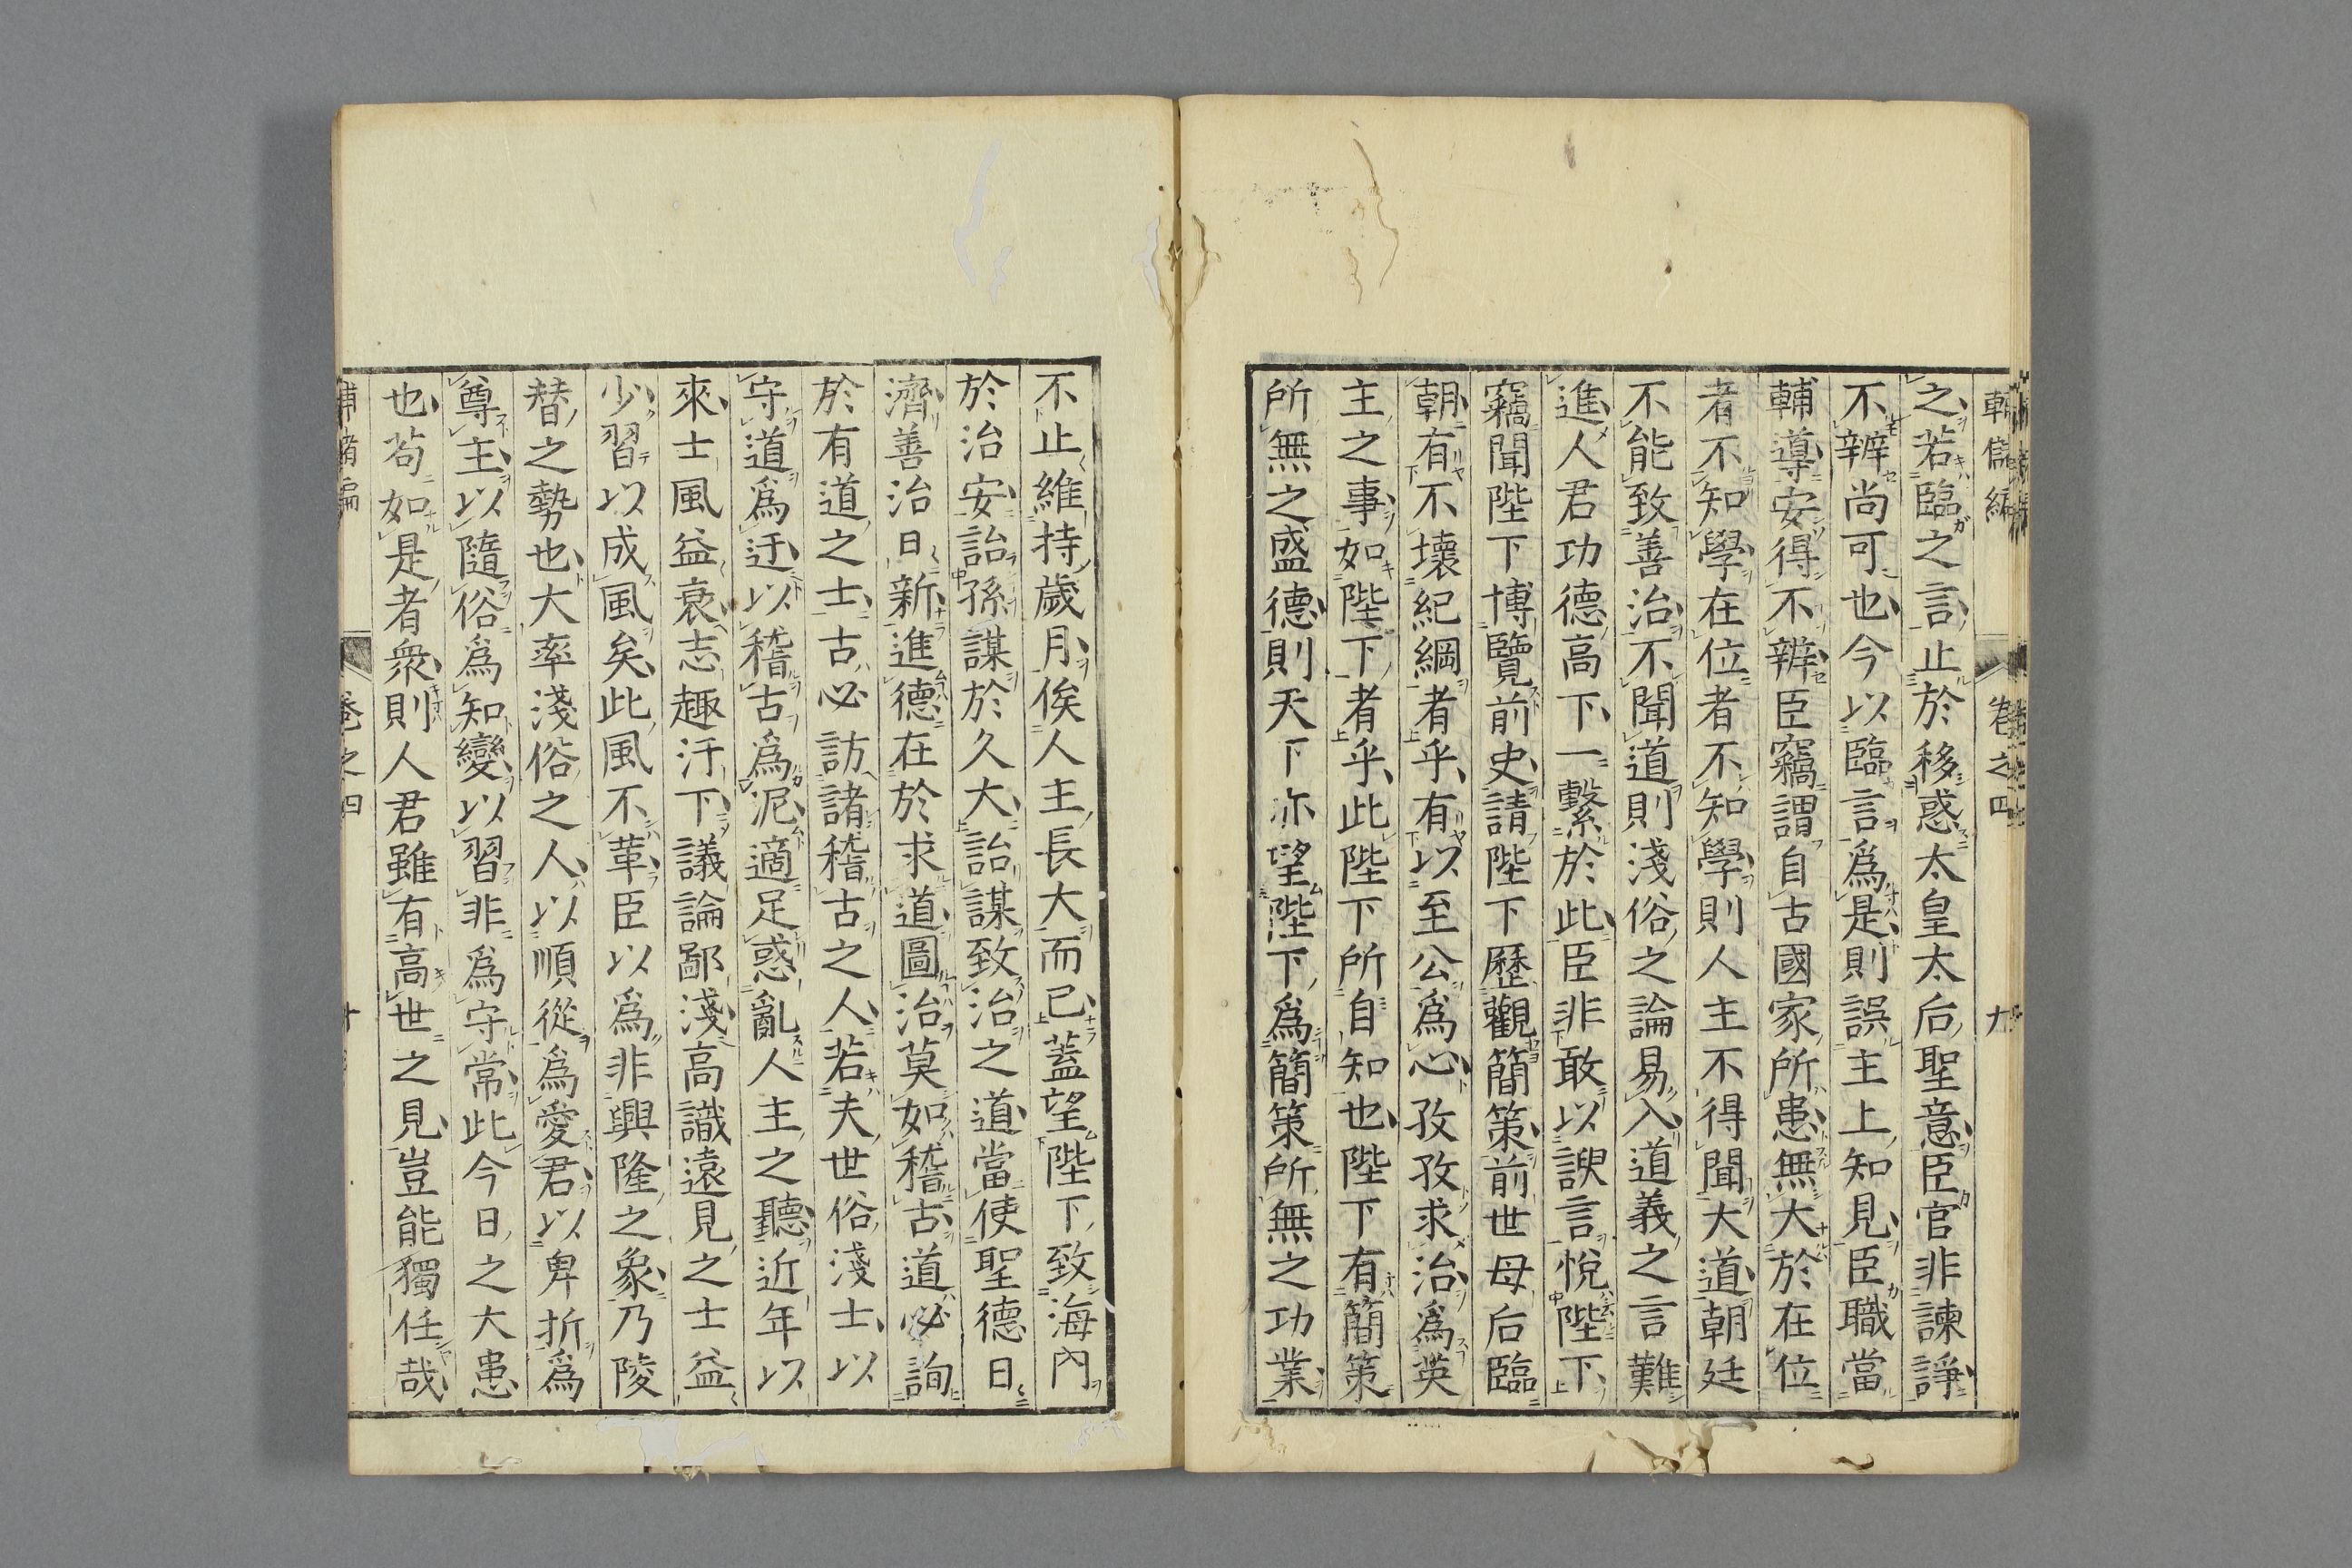 輔儲編 卷之四 九
之若臨之言止於移惑太皇太后聖意臣官非諫諍
不辨尚可也今以臨言爲是則誤主上知見臣職當
輔導安得不辨臣竊謂自古國家所患無大於在位
者不知學在位者不知學則人主不得聞大道朝廷
不能致善治不聞道則淺俗之論易入道義之言難
進人君功德高下一繫於此臣非敢以諛言悅陛下
竊聞陛下博覽前史請陛下歷觀簡策前世母后臨
朝有不壞紀綱者乎有以至公爲心孜孜求治爲英
主之事如陛下者乎此陛下所自知也陛下有簡策
所無之盛德則天下亦望陛下爲簡策所無之功業
不止維持歲月俟人主長大而已蓋望陛下致海內
於治安詒孫謀於久大詒謀致治之道當使聖德日
濟善治日新進德在於求道圖治莫如稽古道必詢
於有道之士古必訪諸稽古之人若夫世俗淺士以
守道爲迂以稽古爲泥適足惑亂人主之聽近年以
來士風益衰志趣汙下議論鄙淺高識遠見之士益
少習以成風矣此風不革臣以爲非興隆之象乃陵
替之勢也大率淺俗之人以順從爲愛君以卑折爲
尊主以隨俗爲知變以習非爲守常此今日之大患
也苟如是者衆則人君雖有高世之見豈能獨任哉
輔儲編 卷之四 十